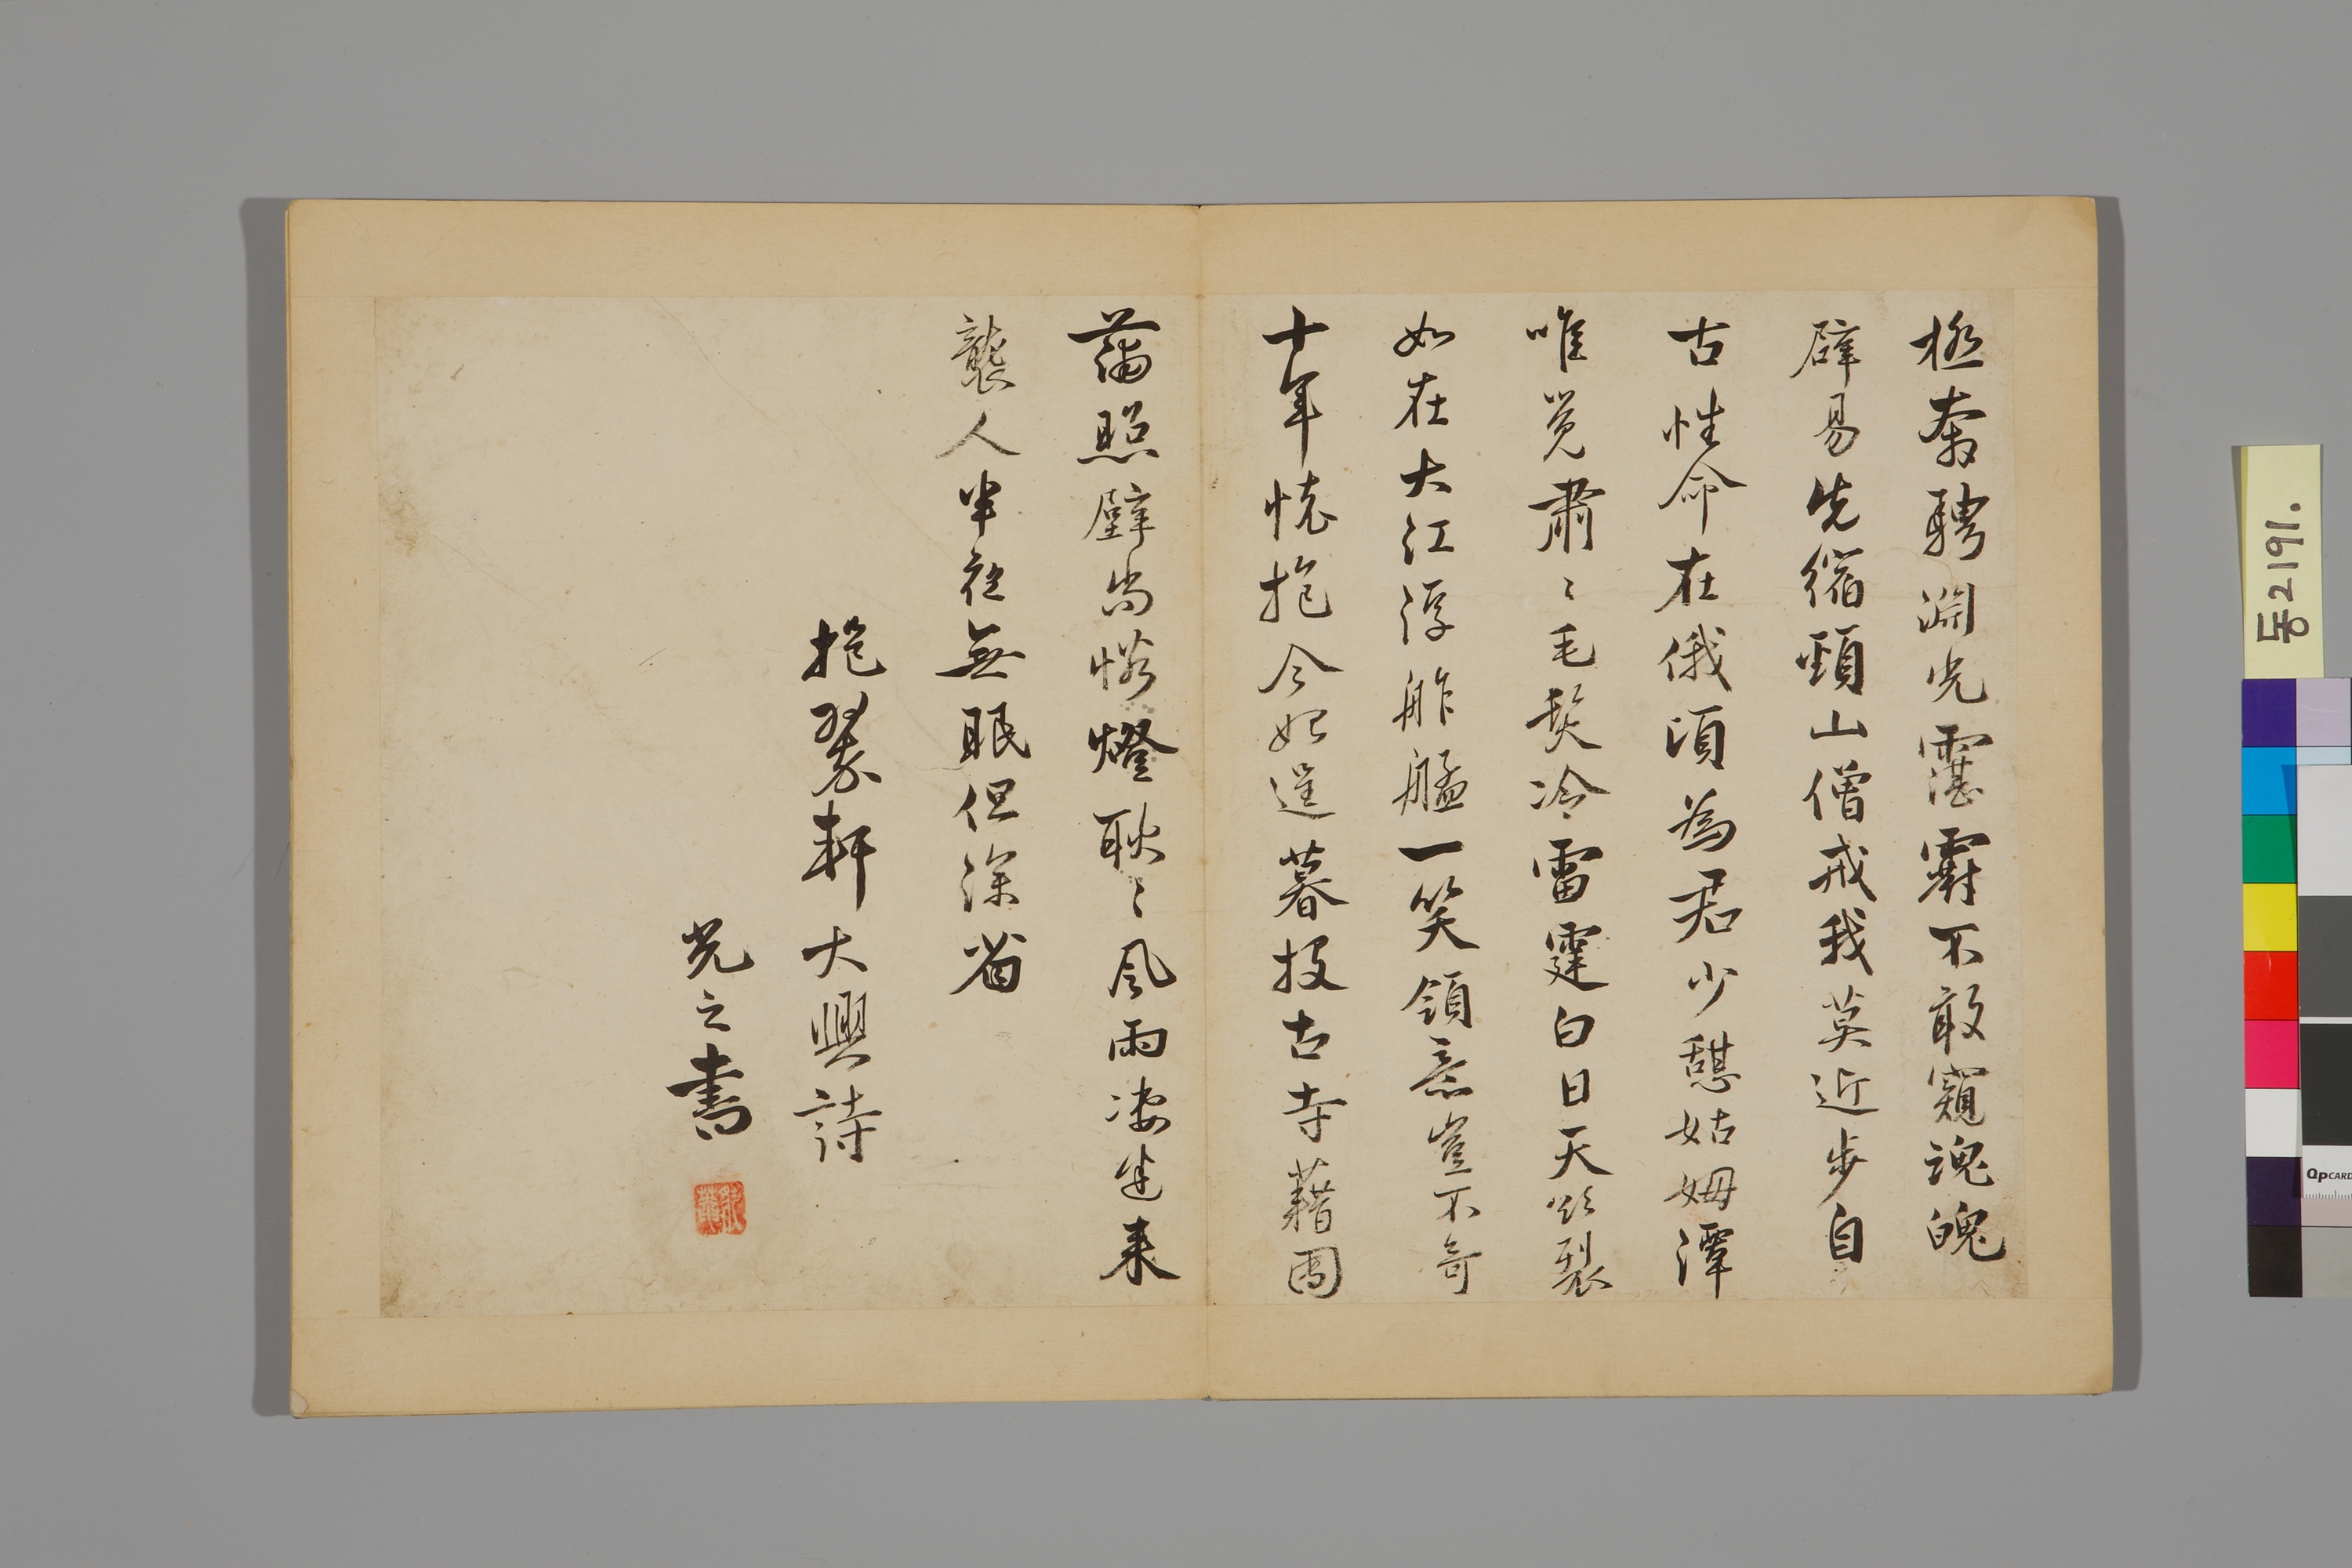 極奔騁淵光霮䨴不敢窺魂魄
辟易先縮頸山僧戒我莫近步自
古性命在俄頃為君少憇姑姆潭
唯覚肅〻毛髮冷雷霆白日天欲裂
如在大江浮舴艋一笑領意豈不奇
十年懷抱今始逞暮投古寺藉團
蒲照壁尚懸燈耿〻風雨凄迷来
襲人半夜無眠但深省
挹翠軒大興詩
光之書
동2191.
QPCARD